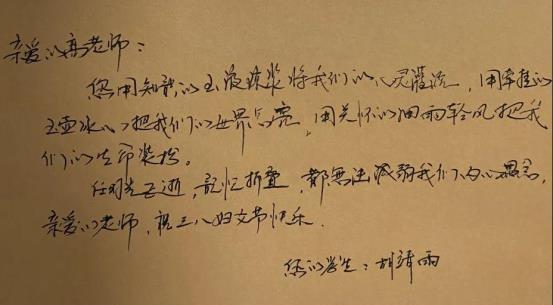 亲爱的高老师：
您用知识的玉液琼浆将我们的心灵灌溉，用牵挂的
玉壶冰心把我们的世界点亮，用关怀的细雨轻风把我
们的生命装扮。
任时光飞逝，记忆折叠，都無法减弱我们内心思念，
亲爱的老师，祝三八妇女节快乐.
您的学生：胡靖雨